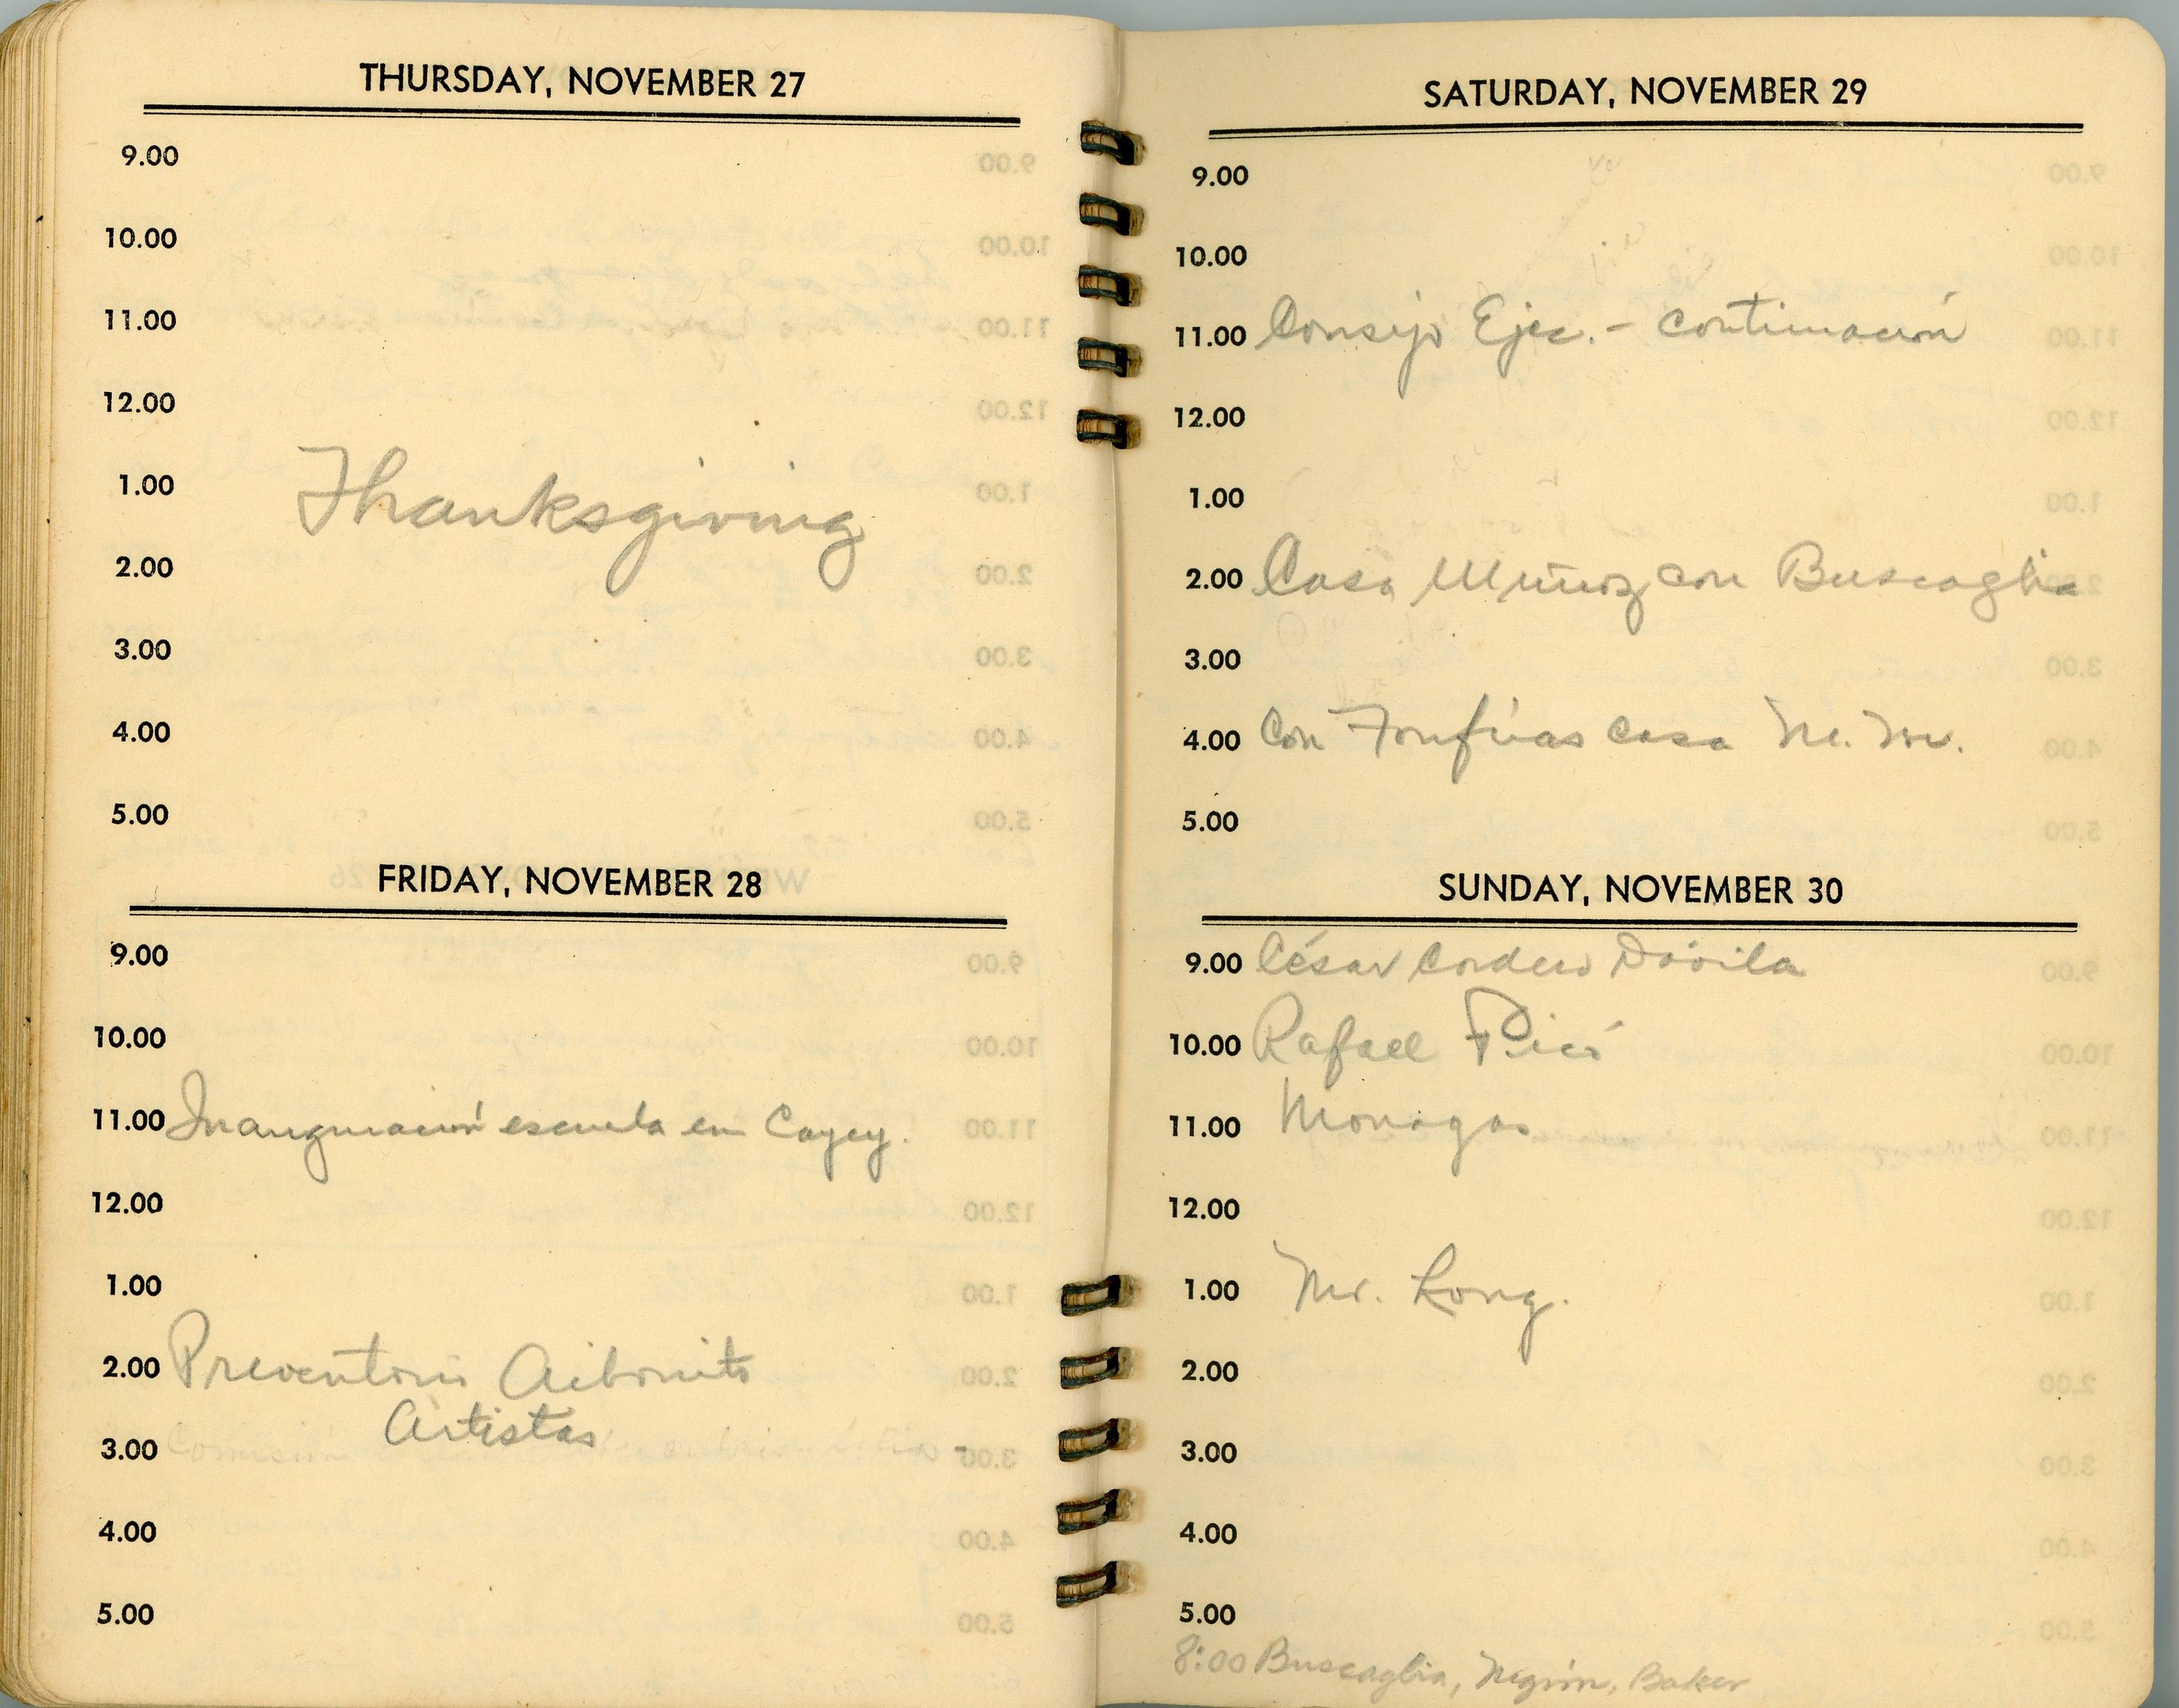 THURSDAY, NOVEMBER 27
9.00
10.00
11.00
12.00
1.00
Thanksgiving
2.00
3.00
4.00
5.00
FRIDAY, NOVEMBER 28
9.00
10.00
11.00 Inauguración escuela en Cayey.
12.00
1.00
2.00 Preventorio Aibonito
Artistas
3.00 Comisión
4.00
5.00
SATURDAY, NOVEMBER 29
9.00
10.00
11.00 Consejo Ejec. - continuación
12.00
1.00
2.00 Casa Muñoz con Buscaglia
3.00
4.00 Con Fonfrías casa M. M.
5.00
SUNDAY, NOVEMBER 30
9.00 César Cordero Dávila
10.00 Rafael Picó
11.00 Monagas
12.00
1.00 Mr. Long.
2.00
3.00
4.00
5.00
8:00 Buscaglia, Negrón, Baker